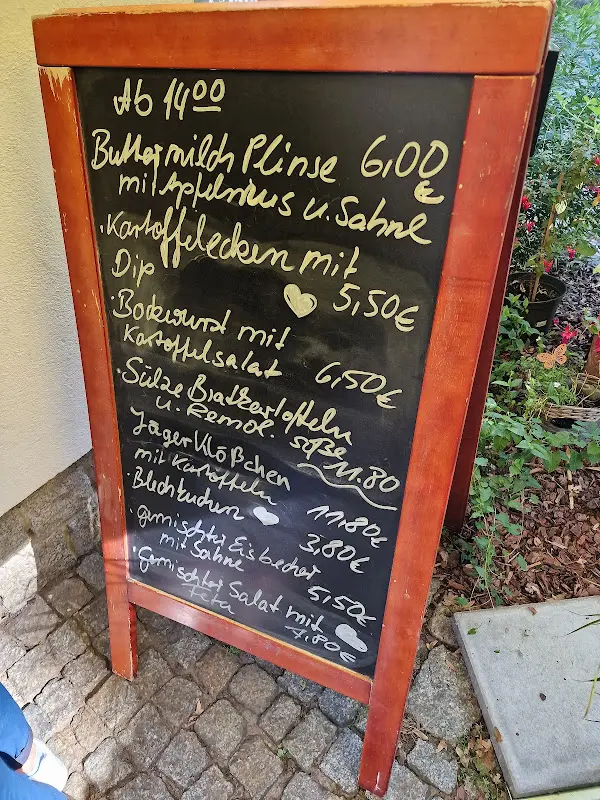 Ab 14 00
Buttermilch Plinse 6,00 €
mit Apfelmus u. Sahne
. Kartoffelecken mit
Dip 5,50 €
. Bockwurst mit
Kartoffelsalat 6,50 €
. Sülze Bratkartoffeln
u. Remol. soße 11.80
Jäger Klößchen
mit Kartoffeln 11,80 €
. Blechkuchen 3,80 €
. gemischter Eisbecher
mit Sahne 5,50 €
. Gemischter Salat mit
Feta 7.80 €